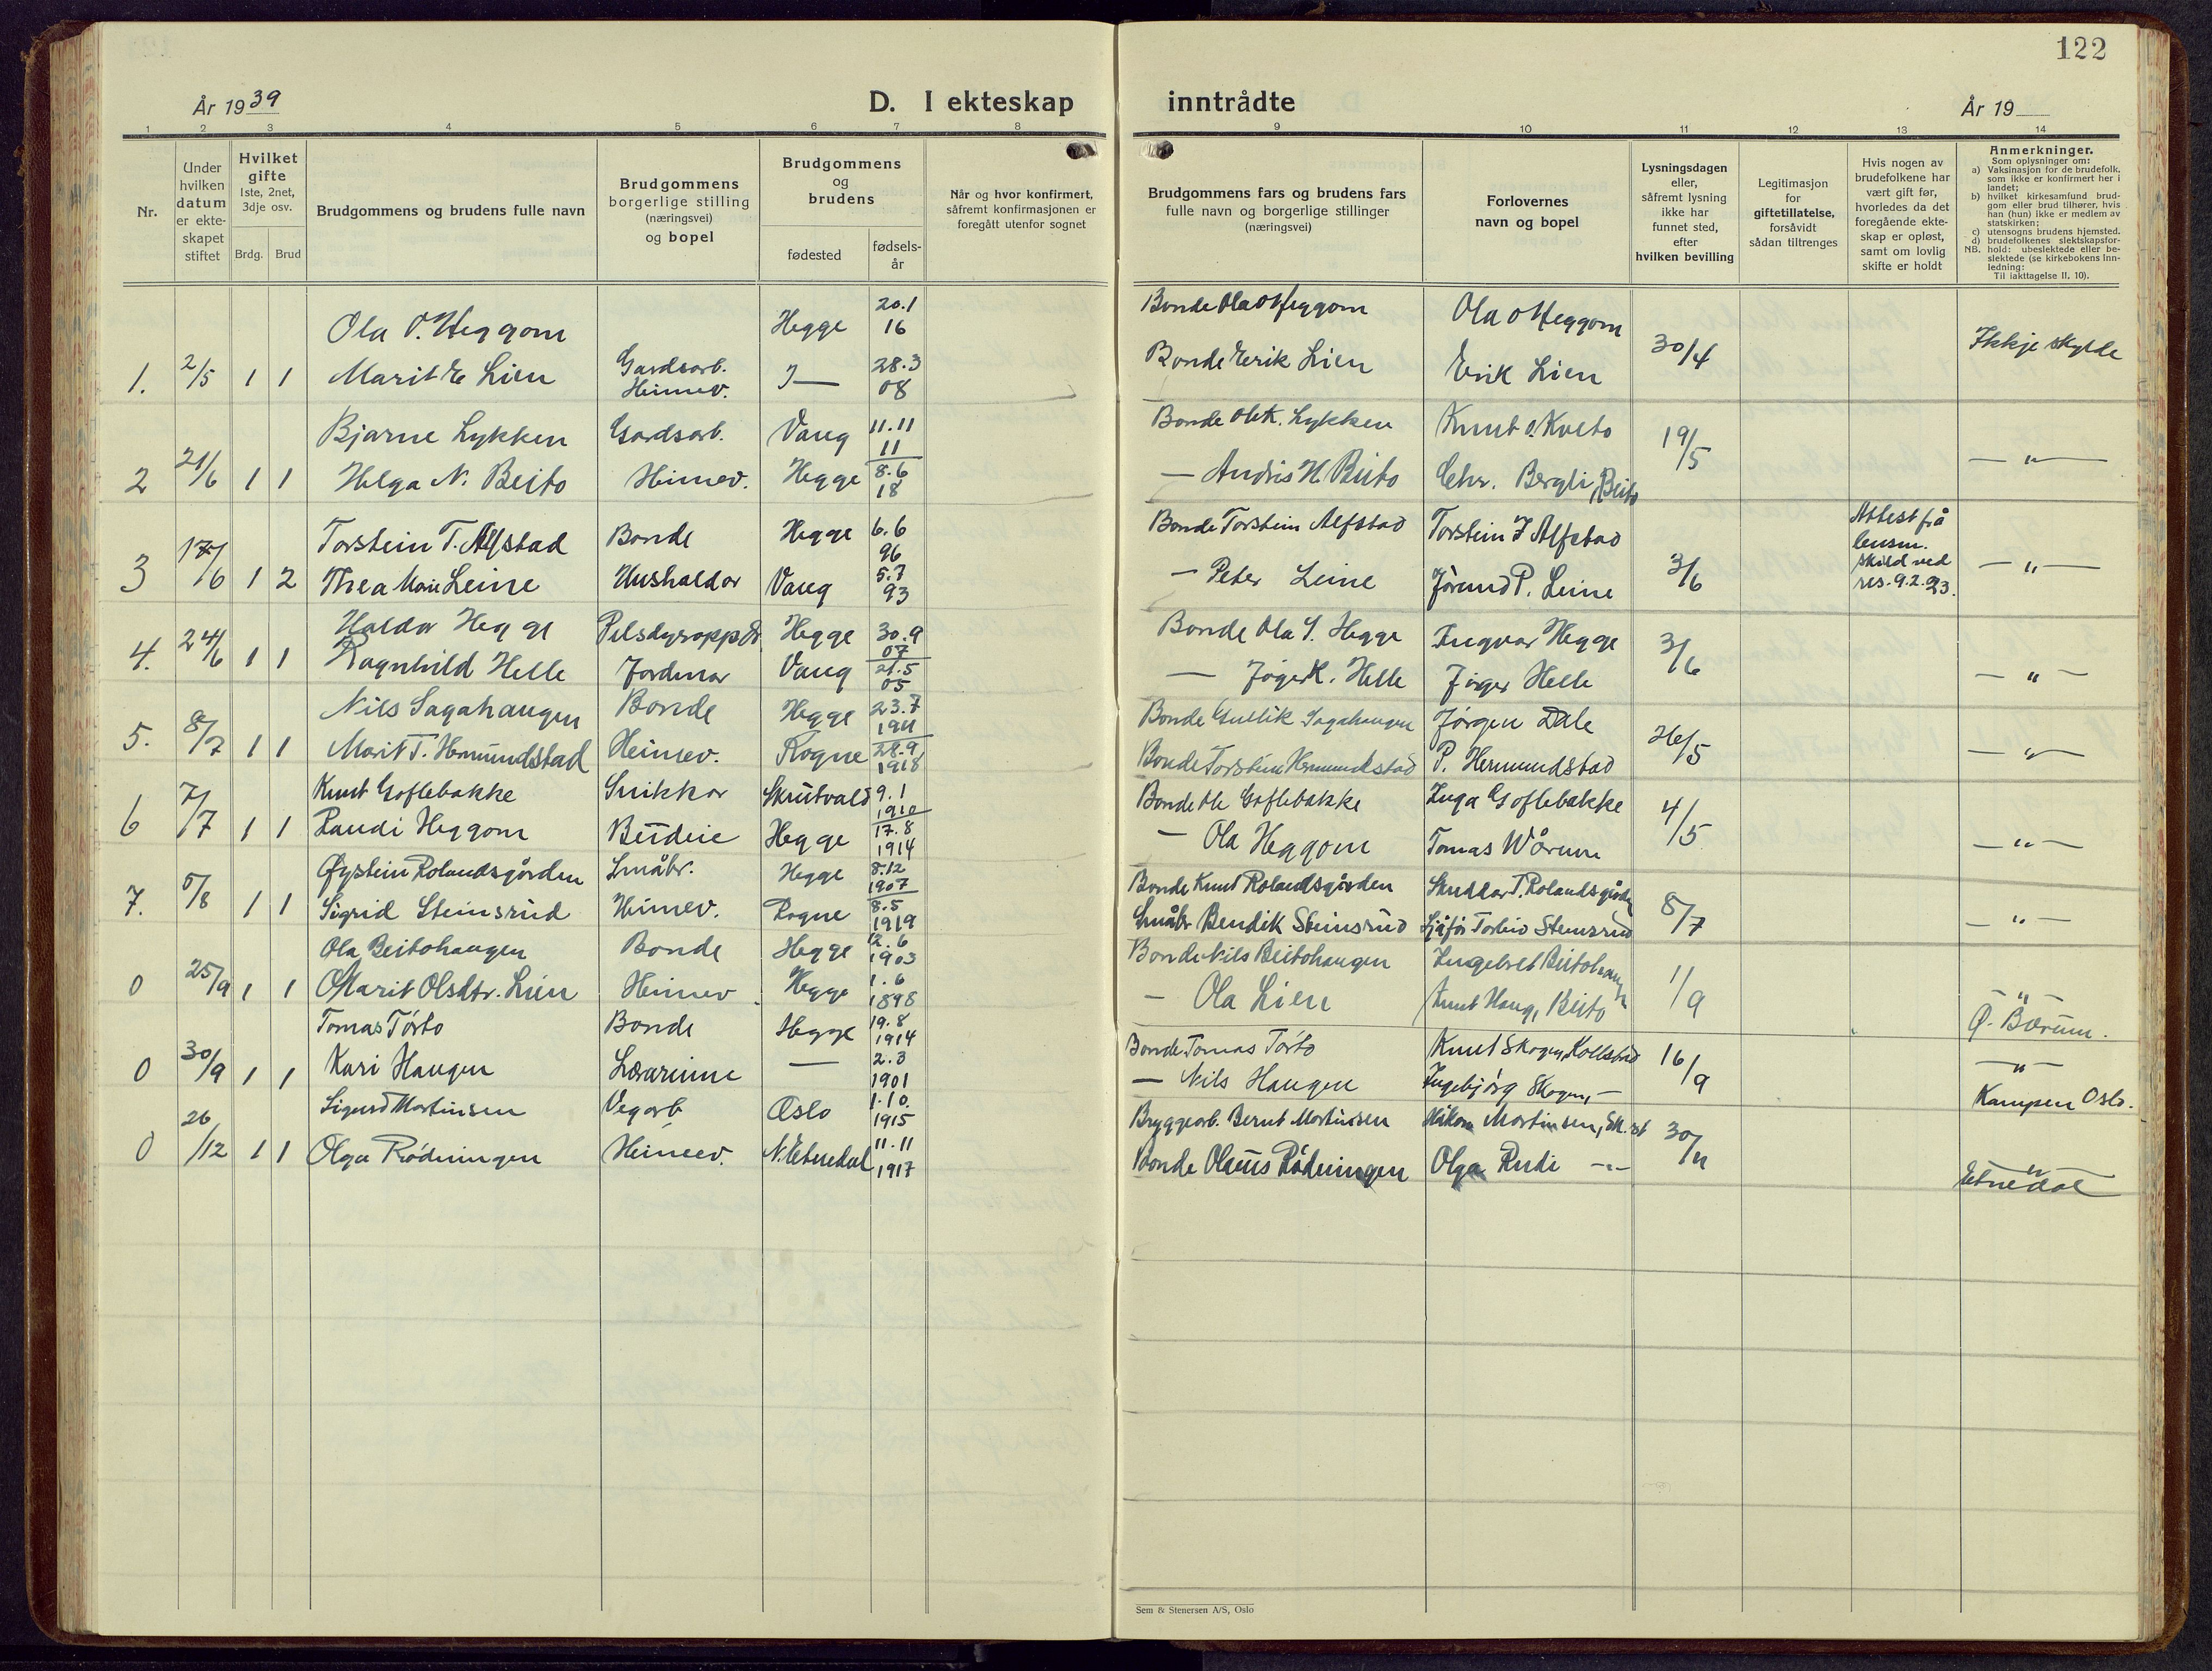 122
År 1939
D. I ekteskap inntrådte
År 19
1 2 3 4 5 6 7 8 9 10 11 12 13 14
Nr.
Under hvilken datum er ekte-skapet stiftet
Hvilket gifte
1ste, 2net, 3dje osv.
Brdg. Brud
Brudgommens og brudens fulle navn
Brudgommens borgerlige stilling (næringsvei) og bopel
Brudgommens og brudens
fødested
fødsels-år
Når og hvor konfirmert, såfremt konfirmasjonen er foregått utenfor sognet
Brudgommens fars og brudens fars fulle navn og borgerlige stillinger (næringsvei)
Forlovernes navn og bopel
Lysningsdagen eller, såfremt lysning ikke har funnet sted, efter hvilken bevilling
Legitimasjon for giftetillatelse, forsåvidt sådan tiltrenges
Hvis nogen av brudefolkene har vært gift før, hvorledes da det foregående ekte-skap er opløst, samt om lovlig skifte er holdt
Anmerkninger.
Som oplysninger om:
a) Vaksinasjon for de brudefolk, som ikke er konfirmert her i landet;
b) hvilket kirkesamfund brud-gom eller brud tilhører, hvis han (hun) ikke er medlem av statskirken;
c) utensogns brudens hjemsted.
d) brudefolkenes slektskapsfor-hold: ubeslektede eller be-slektede (se kirkebokens Inn-ledning:
NB. Til iakttagelse II, 10).
Ola O. Heggom Hegge 20.1 16 Bonde Ola O Heggom Ola O Heggom
1. 2/5 1 1 Marit E Lien Gardsarb. Heimev. 28.3 08 Bonde Erik Lien Erik Lien 30/4 Ikkje skylde
Bjarne Lykken Gardsarb. Vang 11.11 11 Bonde Ole K. Lykken Knut O. Kvito
2 21/6 1 1 Helga N. Beito Heimev. Hegge 8.6 18 — Andris H Beito Chr. Bergli, Beito 19/5 — " —
Torstein T. Alfstad Bonde Hegge 6.6 96 Bonde Torstein Alfstad Torstein T Alfstad
3 17/6 1 2 Thea Marie Leine Hushaldar Vang 5.7 93 — Peter Leine Jørund P. Leine 3/6 Attest frå lensm. skild ved res. 9.2.23. — " —
Haldor Hegge Pelsdyroppdr. Hegge 30.9 07 Bonde Ola Y. Hegge Ingvar Hegge
4. 24/6 1 1 Ragnhild Helle Jordmor Vang 21.5 05 — Jøger K. Helle Jøger Helle 3/6 — " —
Nils Sagahaugen Bonde Hegge 23.7 1911 Bonde Gullik Sagahaugen Jørgen Dale
5. 8/7 1 1 Marit T. Hermundstad Heimev. Rogne 28.9 1918 Bonde Torstein Hermundstad P. Hermundstad 26/5 — " —
Knut Goflebakke Snikkar Skrutvold 9.1 1910 Bonde Ole Goflebakke Inga Goflebakke
6 7/7 1 1 Randi Heggom Budeie Hegge 17.8 1914 — Ola Heggom Tomas Wårum 4/5 — " —
Øystein Rolandsgården Småbr. Hegge 8.12 1907 Bonde Knut Rolandsgården Skreddar T. Rolandsgården
7. 5/8 1 1 Sigrid Steinsrud Heimev. Rogne 8.5 1919 Småbr Bendik Steinsrud Sjåfør Torleiv Steinsrud 8/7 — " —
Ola Beitohaugen Bonde Hegge 12.6 1903 Bonde Nils Beitohaugen Ingebret Beitohaugen
0 25/9 1 1 Marit Olsdtr. Lien Heimev Hegge 1.6 1898 — Ola Lien Knut Haug, Beito 11/9 — " — Ø. Bærum.
Tomas Tørto Bonde Hegge 19.8 1914 Bonde Tomas Tørto Knut Skogen, Kollstad
0 30/9 1 1 Kari Haugen Lærarinne — 2.3 1901 — Nils Haugen Ingebjørg Skogen, — 16/9 — " — Kampen Oslo.
Sigurd Martinsen Vegarb Oslo 1.10. 1915 Bryggearb. Bernt Martinsen Håkon Martinsen,
0 26/12 1 1 Olga Rødningen Heimev. N. Etnedal 11.11 1917 Bonde Olaus Rødningen Olga Rudi —"— 30/11 — " — Etnedal
Sem & Stenersen A/S, Oslo